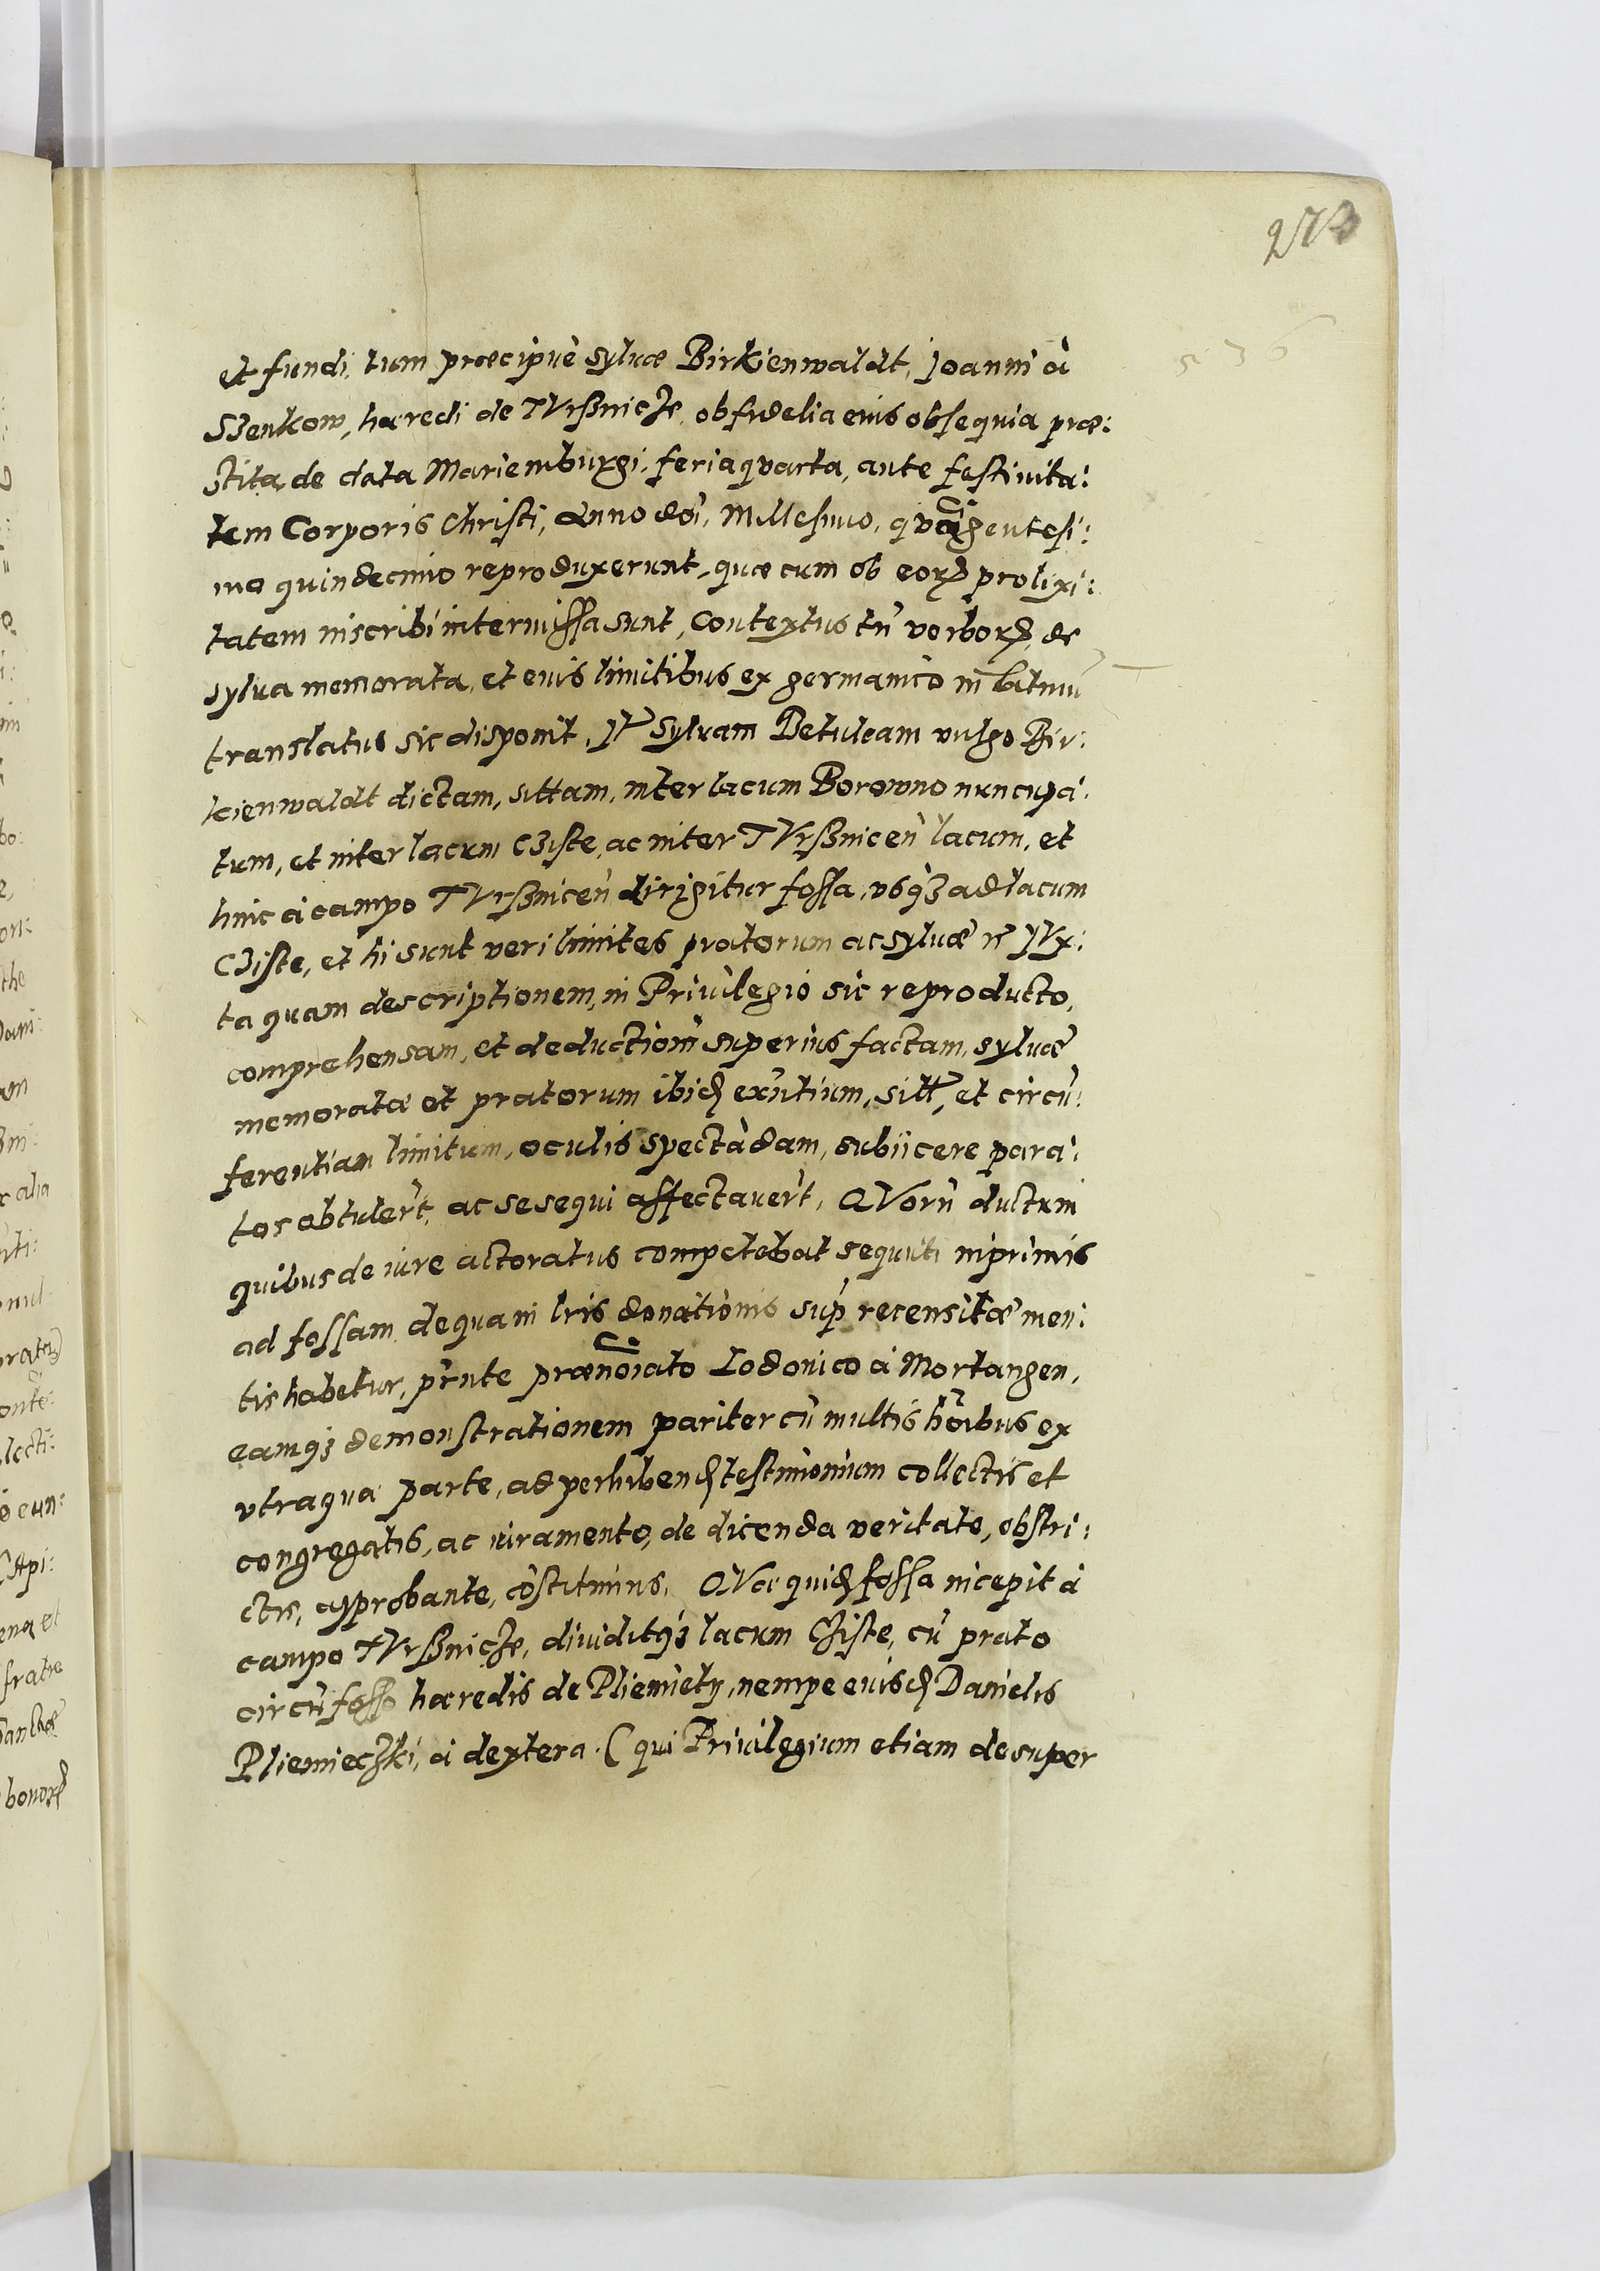 273
536
et fundi, tum præcipuè syluæ Birkienwaldt, Joanni à
Szenkow, hæredi de TVrßnicze, ob fidelia euis obsequia præ:
stita, de data Mariemburgi, feria qvarta, ante festiuita:
tem Corporis Christi, Anno doi, Millesimo, qvadrigentesi:
mo quindecimo reproduxerunt, quæ cum ob eorꝝ prolixi:
tatem inscribi intermissa sunt, Contextus tñ verborꝝ, de
sylua memorata, et euis limitibus ex germanico in latinũ
translatus sic disponit, Jt Syluam Betuleam vulgo Bir:
kienwaldt dictam, sittam, inter lacum Borowno nuncupà:
tum, et inter lacum Cziste, ac inter TVrßniceñ lacum, et
hinc à campo TVrßniceñ dirigitur fossa, vsqꝫ ad lacum
Cziste, et hi sunt veri limites pratorum ac syluæ rc̃ JVx:
ta quam descriptionem, in Priuilegio sic reproducto,
comprehensam, et deductioñi superius factam, syluæ
memoratæ et pratorum ibid exñtium, sitt, et circũ:
ferentiam limitum, oculis spectãdam, subiicere para:
tos obtulerũt, ac se sequi affectauerũt, QVorũ ductum
quibus de iure actoratus competebat sequuti inprimis
ad fossam de qua in lris donationis sup recensitæ men:
tis habetur, prñte prænoiato Lodouico à Mortangen,
eamqꝫ demonstrationem pariter cũ multis hoibus ex
vtraqua parte, ad perhibend testimonium collectis et
congregatis, ac iuramento, de dicenda veritate, obstri:
ctis, approbante, cõstitimus. QVæ quid fossa incepit à
campo TVrßnicze, diuiditqꝫ lacum Cziste, cũ prato
circũfosso hæredis de Pliemiety, nempe euisd Danielis
Pliemieczki, à dextera. (qui Priuilegium etiam desuper